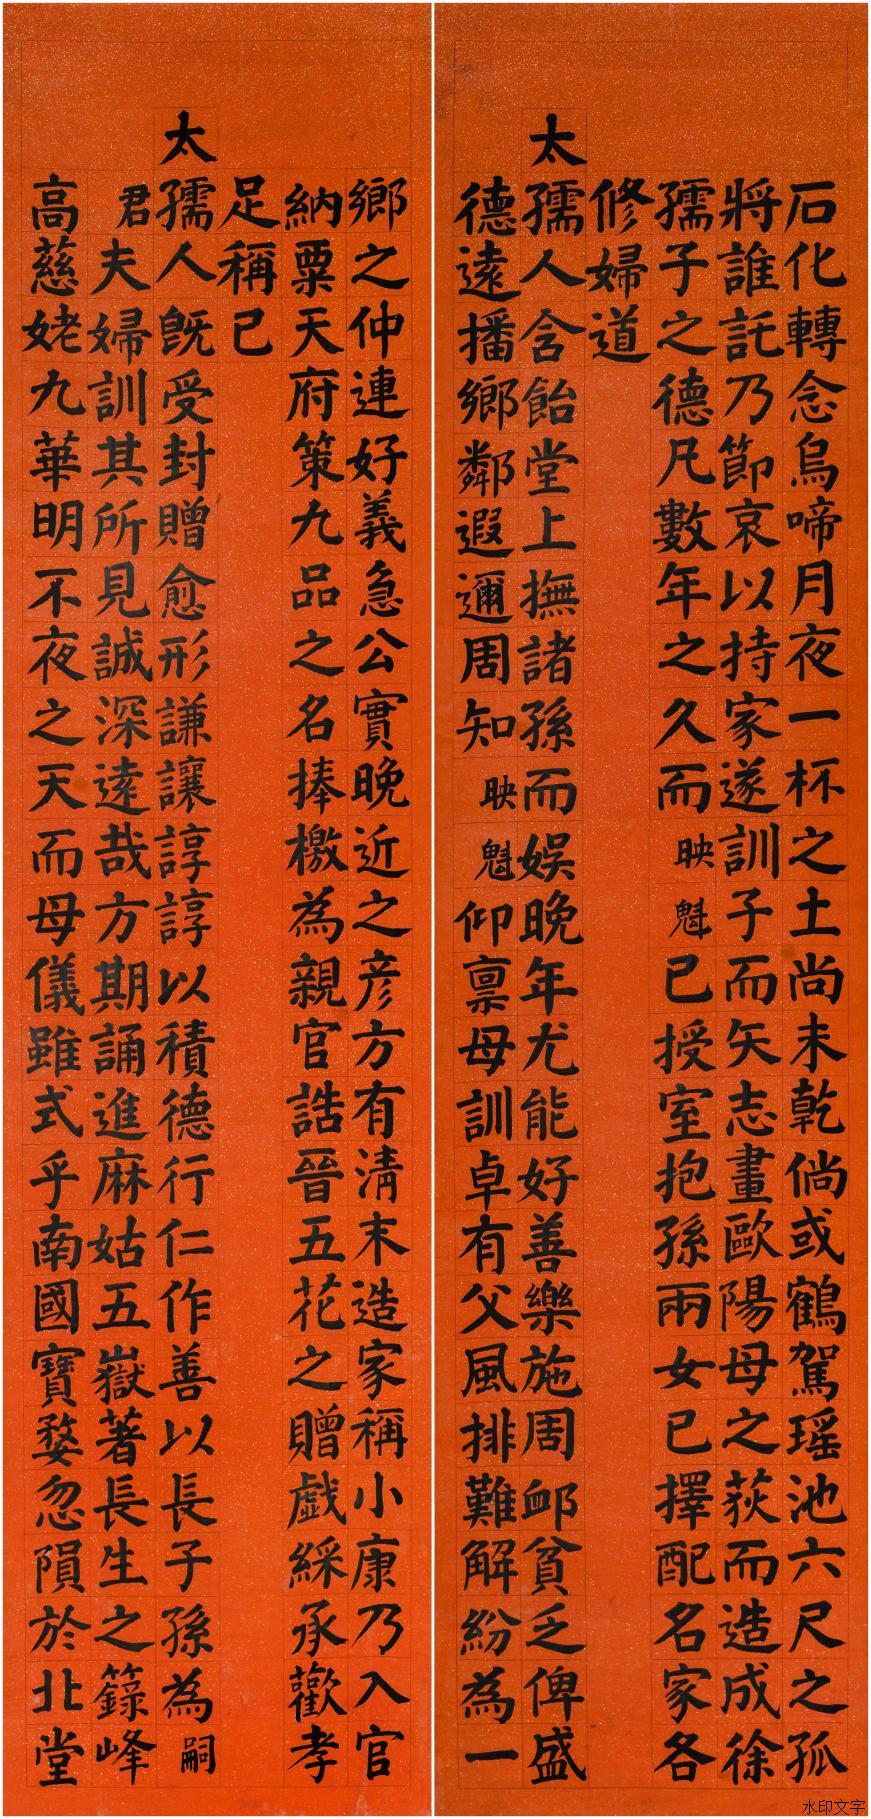 石化轉念烏啼月夜一杯之土尚未乾倘或鶴駕瑶池六尺之孤
將誰託乃節哀以持家遂訓子而矢志畫歐陽母之荻而造成徐
孺子之德凡數年之久而映魁已授室抱孫兩女已擇配名家各
修婦道
太孺人含飴堂上撫諸孫而娛晚年尤能好善樂施周卹貧乏俾盛
德遠播鄉鄰遐邇周知映魁仰禀母訓卓有父風排難解紛為一
鄉之仲連好義急公實晚近之彦方有清末造家稱小康乃入官
納粟天府策九品之名捧檄為親官誥晉五花之贈戲綵承歡孝
足稱已
太孺人既受封贈愈形謙讓諄諄以積德行仁作善以長子孫為嗣
君夫婦訓其所見誠深遠哉方期誦進麻姑五嶽著長生之籙峰
高慈姥九華明不夜之天而母儀雖式乎南國寶婺忽隕於北堂
水印文字